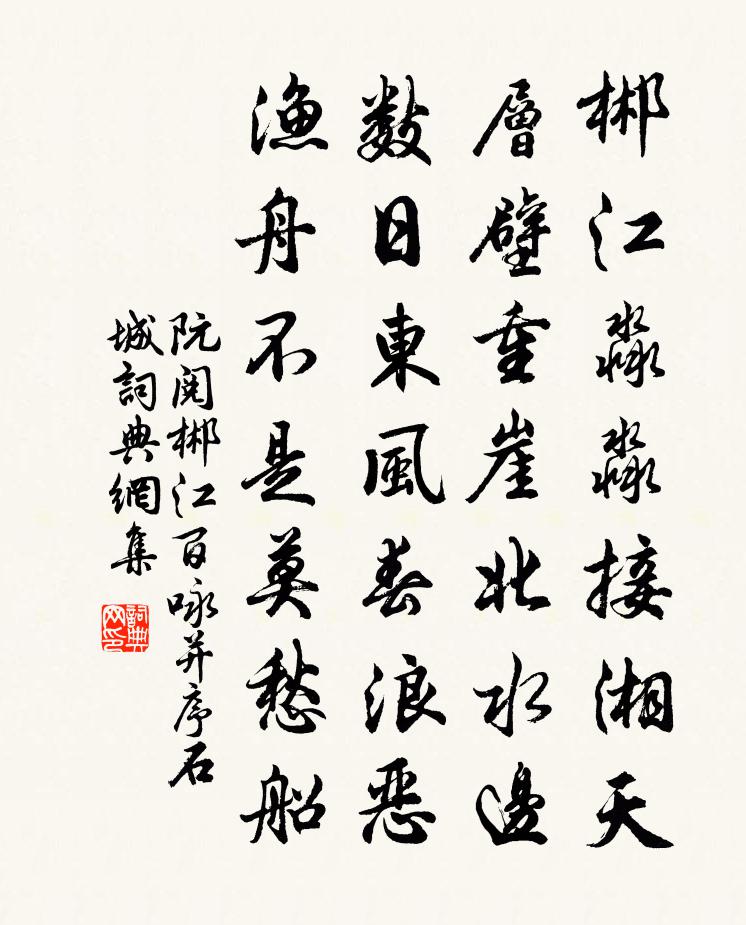 郴江淼淼接湘天
層壁重崖北水邊
數日東風春浪惡
漁舟不是莫愁船
阮閱郴江百咏并序石
城詞典網集
詞典網印